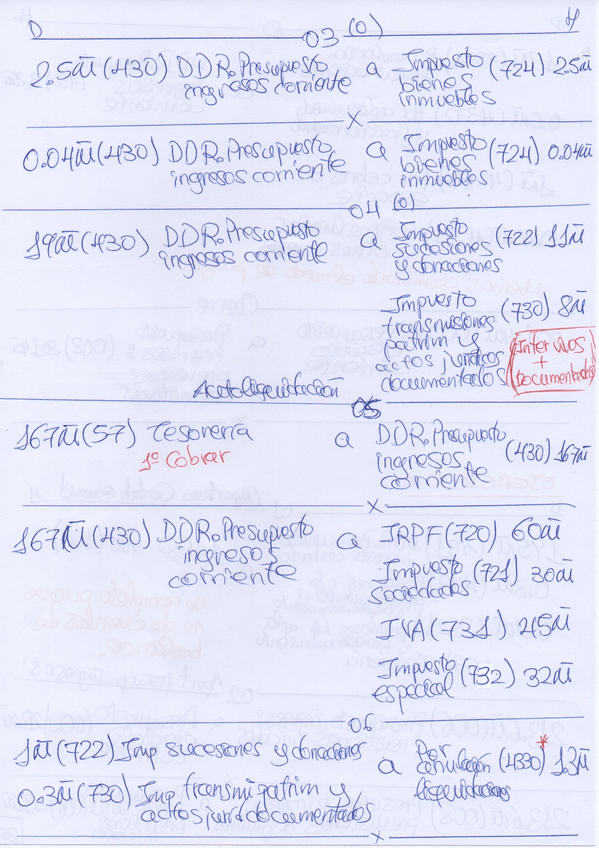 D 03 (0) H
2.5m̄ (430) DDR. Presupuesto a Impuesto (724) 2.5m̄
ingresos corriente bienes
inmuebles
X
0.04m̄ (430) DDR. Presupuesto a Impuesto (724) 0.04m̄
ingresos corriente bienes
inmuebles
04 (0)
19m̄ (430) DDR. Presupuesto a Impuesto (722) 11m̄
ingresos corriente sucesiones
y donaciones
Impuesto (730) 8m̄
transmisiones
patrim y (Inter vivos
actos jurídicos +
documentados documentados)
Autoliquidación
05
167m̄ (57) Tesorería a DDR. Presupuesto
1º Cobrar ingresos (430) 167m̄
corriente
X
167m̄ (430) DDR. Presupuesto a IRPF (720) 60m̄
ingresos
corriente
Impuesto (721) 30m̄
sociedades
IVA (731) 45m̄
Impuesto (732) 32m̄
especial
06
1m̄ (722) Imp sucesiones y donaciones a Por * 
anulación (4330) 1.3m̄
0.3m̄ (730) Imp. transmi patrim y liquidaciones
actos juríd documentados
X